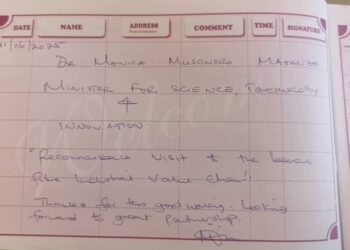 DATE NAME ADDRESS COMMENT TIME SIGNATURE
11/06/2025
Dr Monica Musenero Masanza
Minister for Science, Technology
&
Innovation
Welcome
"Reconnaissance Visit to the banana
fibre Industrial Value Chain"
Thanks for this good work. Looking
forward to great partnership.